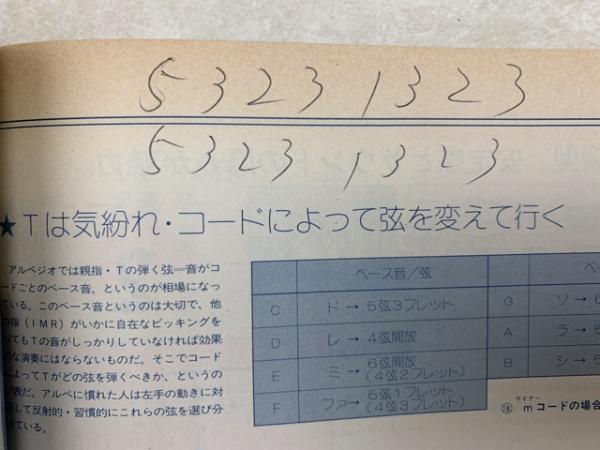 5 3 2 3 1 3 2 3
5 3 2 3 1 3 2 3
★Tは気紛れ・コードによって弦を変えて行く
アルペジオでは親指・Tの弾く弦＝音がコ
ードごとのベース音、というのが相場になっ
ている。このベース音というのは大切で、他
の指（IMR）がいかに自在なピッキングを
してもTの音がしっかりしていなければ効果
的な演奏にはならないものだ。そこでコード
によってTがどの弦を弾くべきか、というの
が表だ。アルペに慣れた人は左手の動きに対
応して反射的・習慣的にこれらの弦を選び分
けている。
ベース音／弦
C ド→ 5弦3フレット G ソ→6
D レ→ 4弦開放 A ラ→5
E ミ→ 6弦開放（4弦2フレット） B シ→5
F ファ→ 6弦1フレット（4弦3フレット）
マイナー
注 mコードの場合